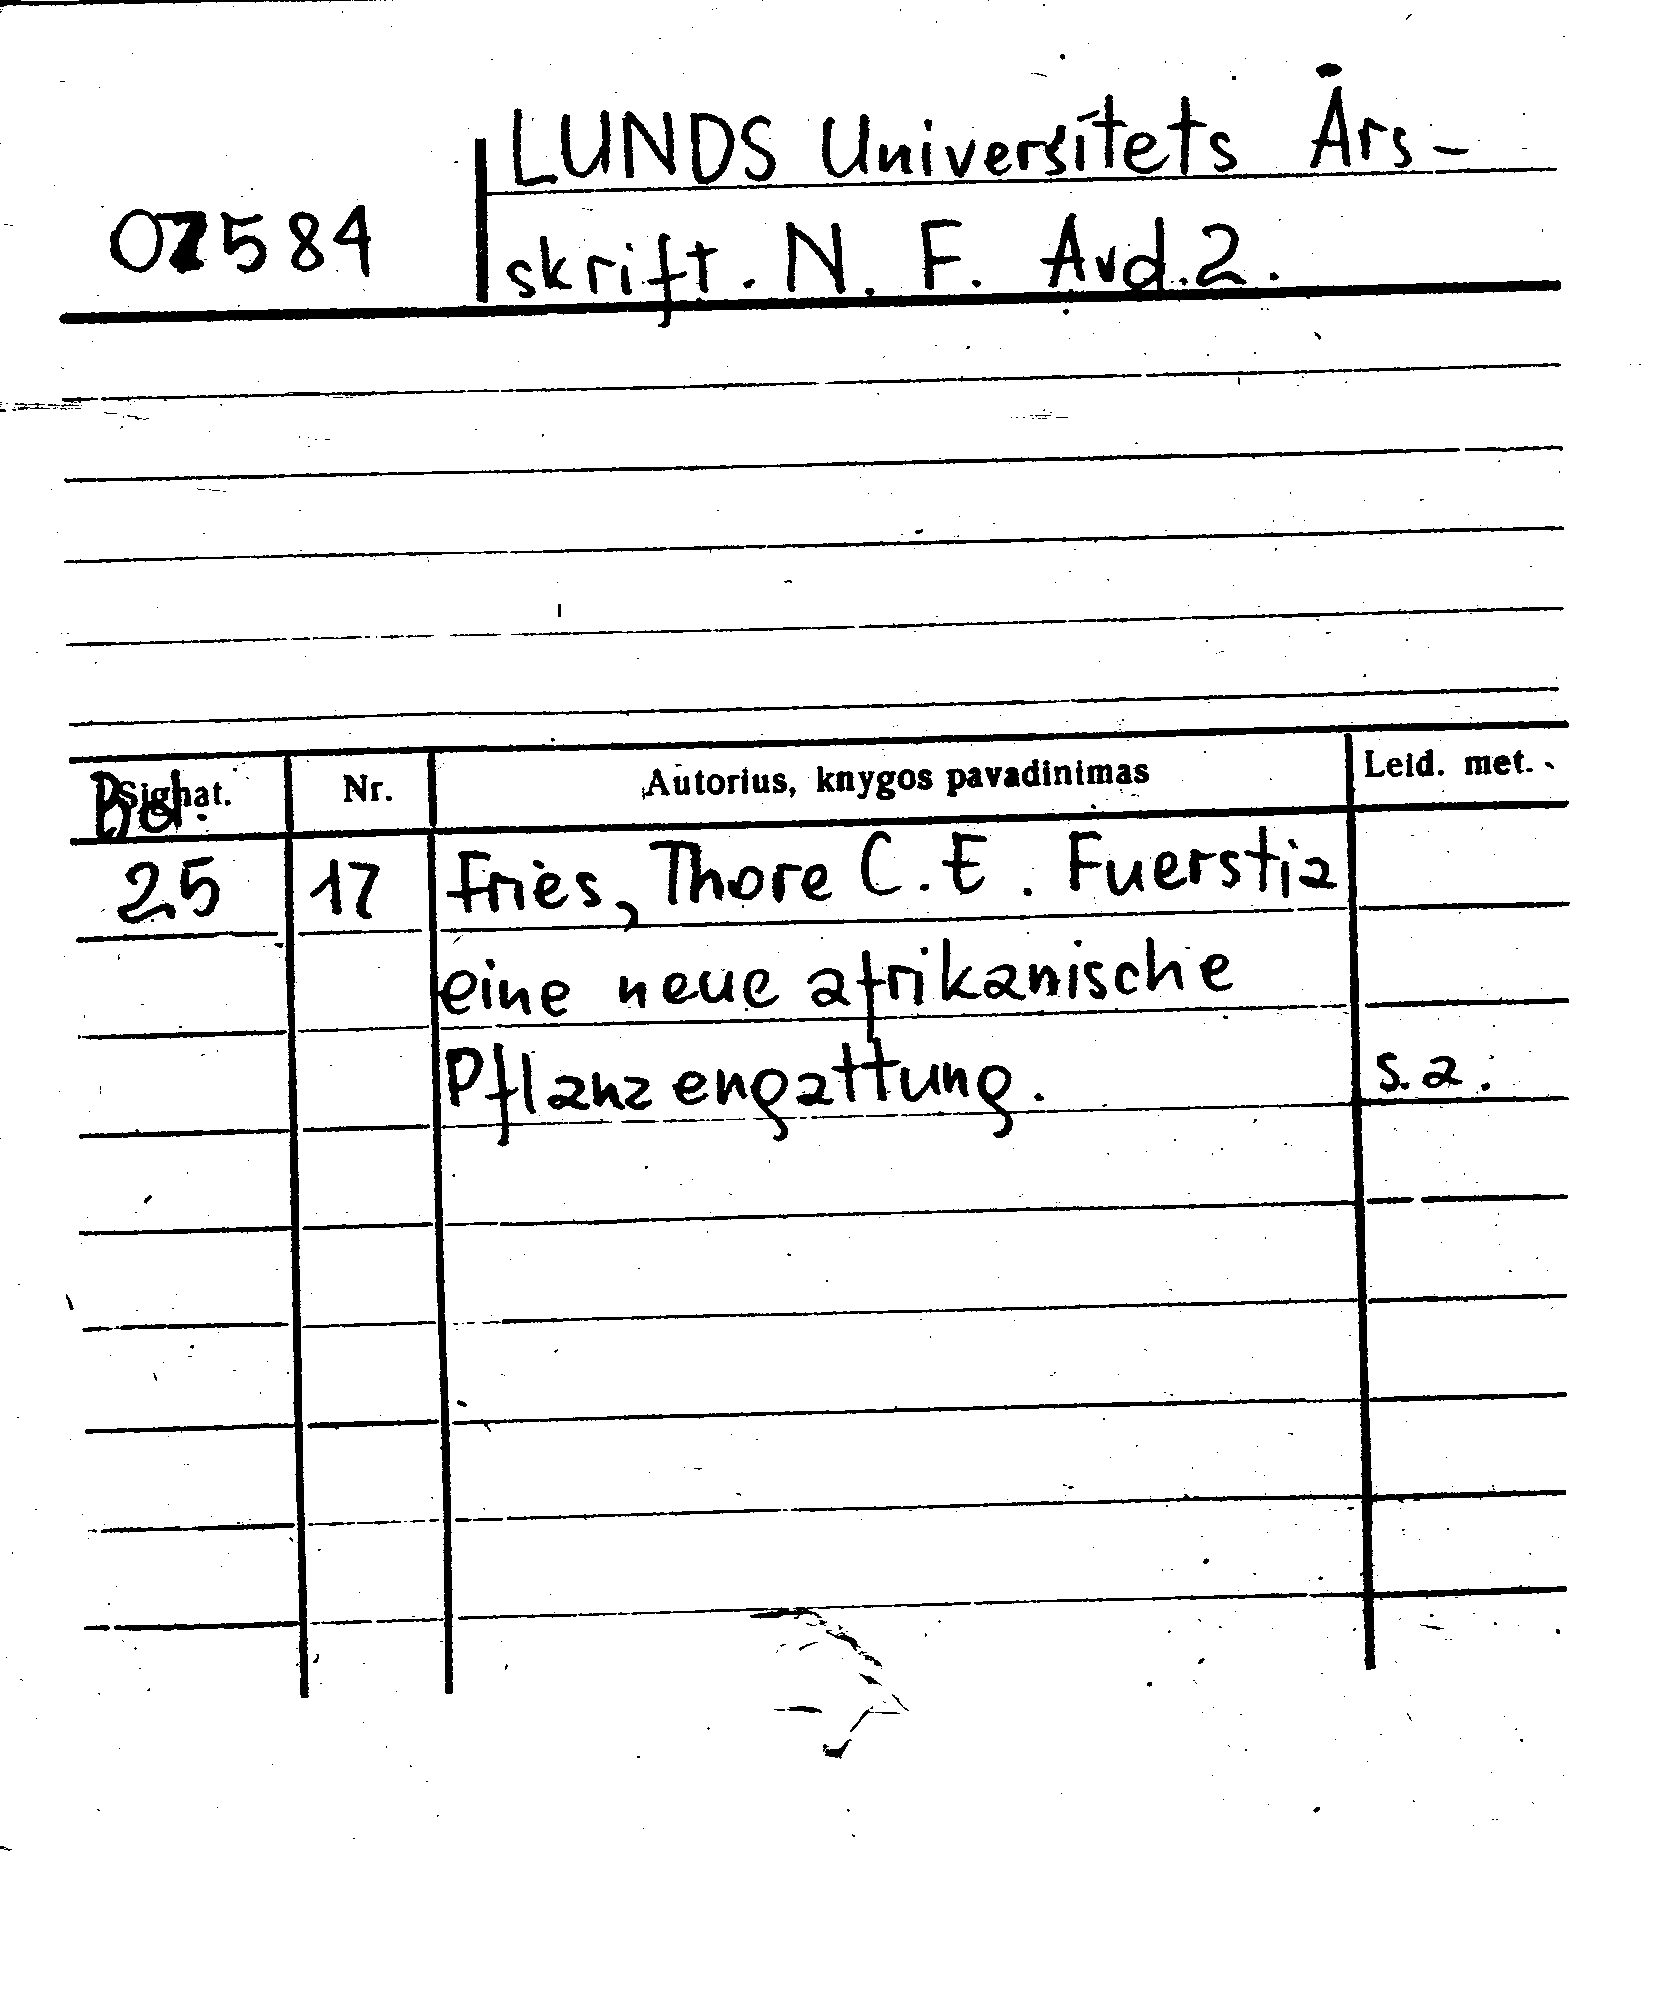 LUNDS Universitets Års-
07584
skrift. N. F. Avd.2.
Bd. Signat. Nr. Autorius, knygos pavadinimas Leid. met.
25 17 Fries, Thore C.E. Fuerstia
eine neue afrikanische
Pflanzengattung. s.a.